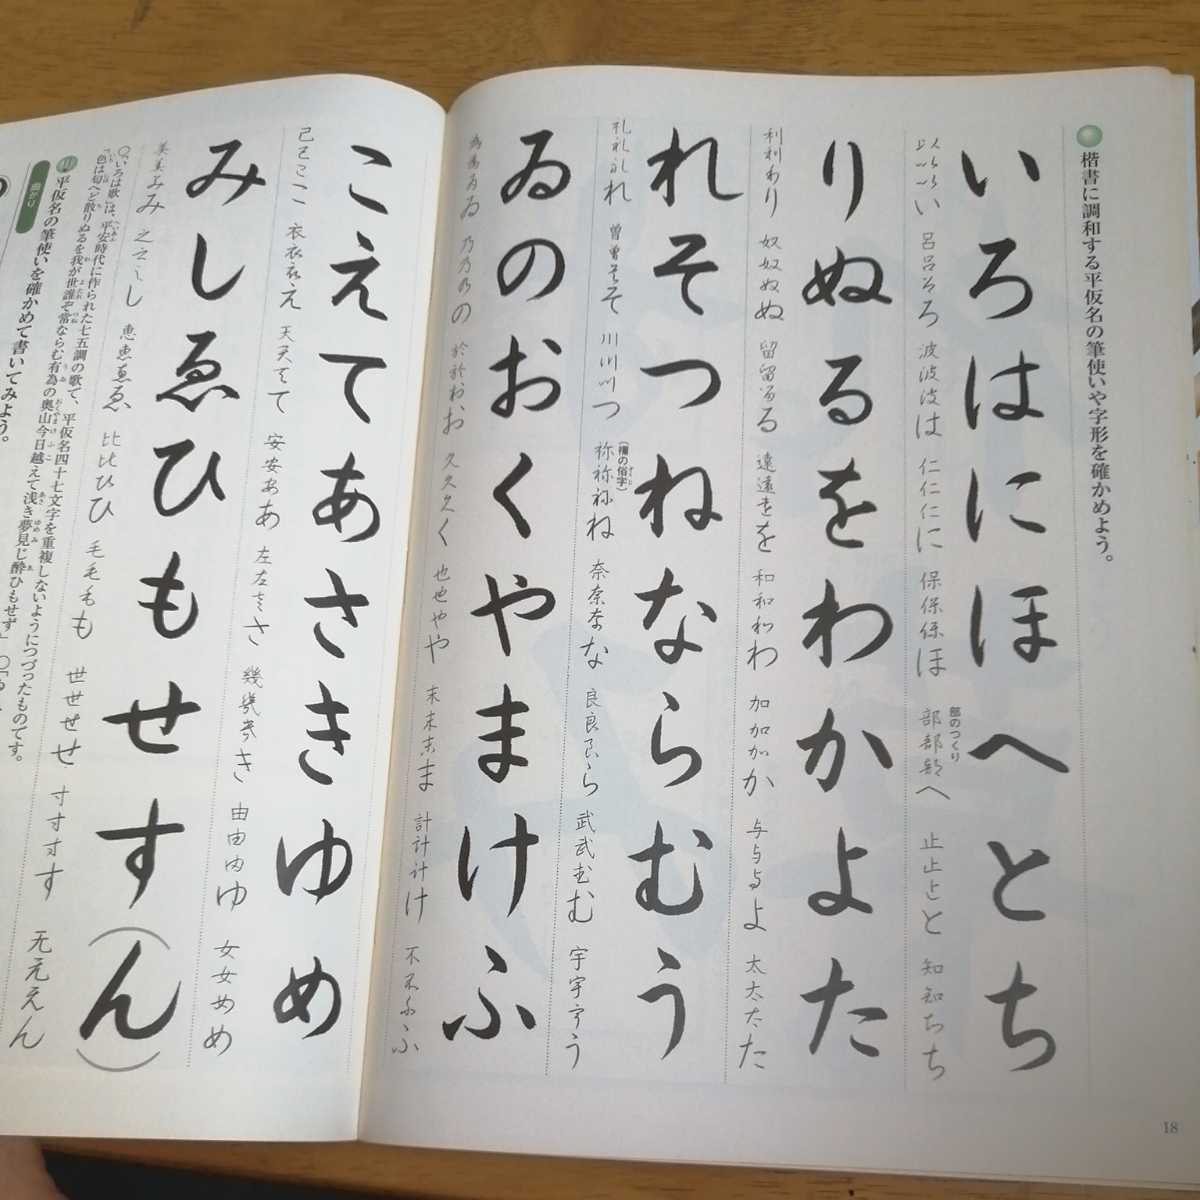 楷書に調和する平仮名の筆使いや字形を確かめよう。
いろはにほへとち
以以㆑い 呂呂ろろ 波波波は 仁仁仁に 保保保ほ 部部部へ 止止とと 知知ちち
部のつくり
りぬるをわかよた
利利わり 奴奴ぬぬ 留留るる 遠遠をを 和和わわ 加加かか 与与与よ 太太たた
れそつねならむう
礼礼礼れ 曽曽そそ 川川川つ 祢祢祢ね 奈奈なな 良良良ら 武武むむ 宇宇宇う
(禰の俗字)
ゐのおくやまけふ
為為ゐゐ 乃乃乃の 於於おお 久久久く 也也やや 末末末ま 計計計け 不不ふふ
こえてあさきゆめ
己己己こ 衣衣衣え 天天てて 安安ああ 左左ささ 幾幾幾き 由由由ゆ 女女めめ
みしゑひもせす(ん)
美美みみ 之之しし 恵恵ゑゑ 比比ひひ 毛毛もも 世世せせ 寸寸すす 无えん
「いろは歌」は、平安時代に作られた七五調の歌で、平仮名四十七文字を重複しないようにつづったものです。
「色は匂へど散りぬるを我が世誰ぞ常ならむ有為の奥山今日越えて浅き夢見じ酔ひもせず」
平仮名の筆使いを確かめて書いてみよう。
曲がり
18